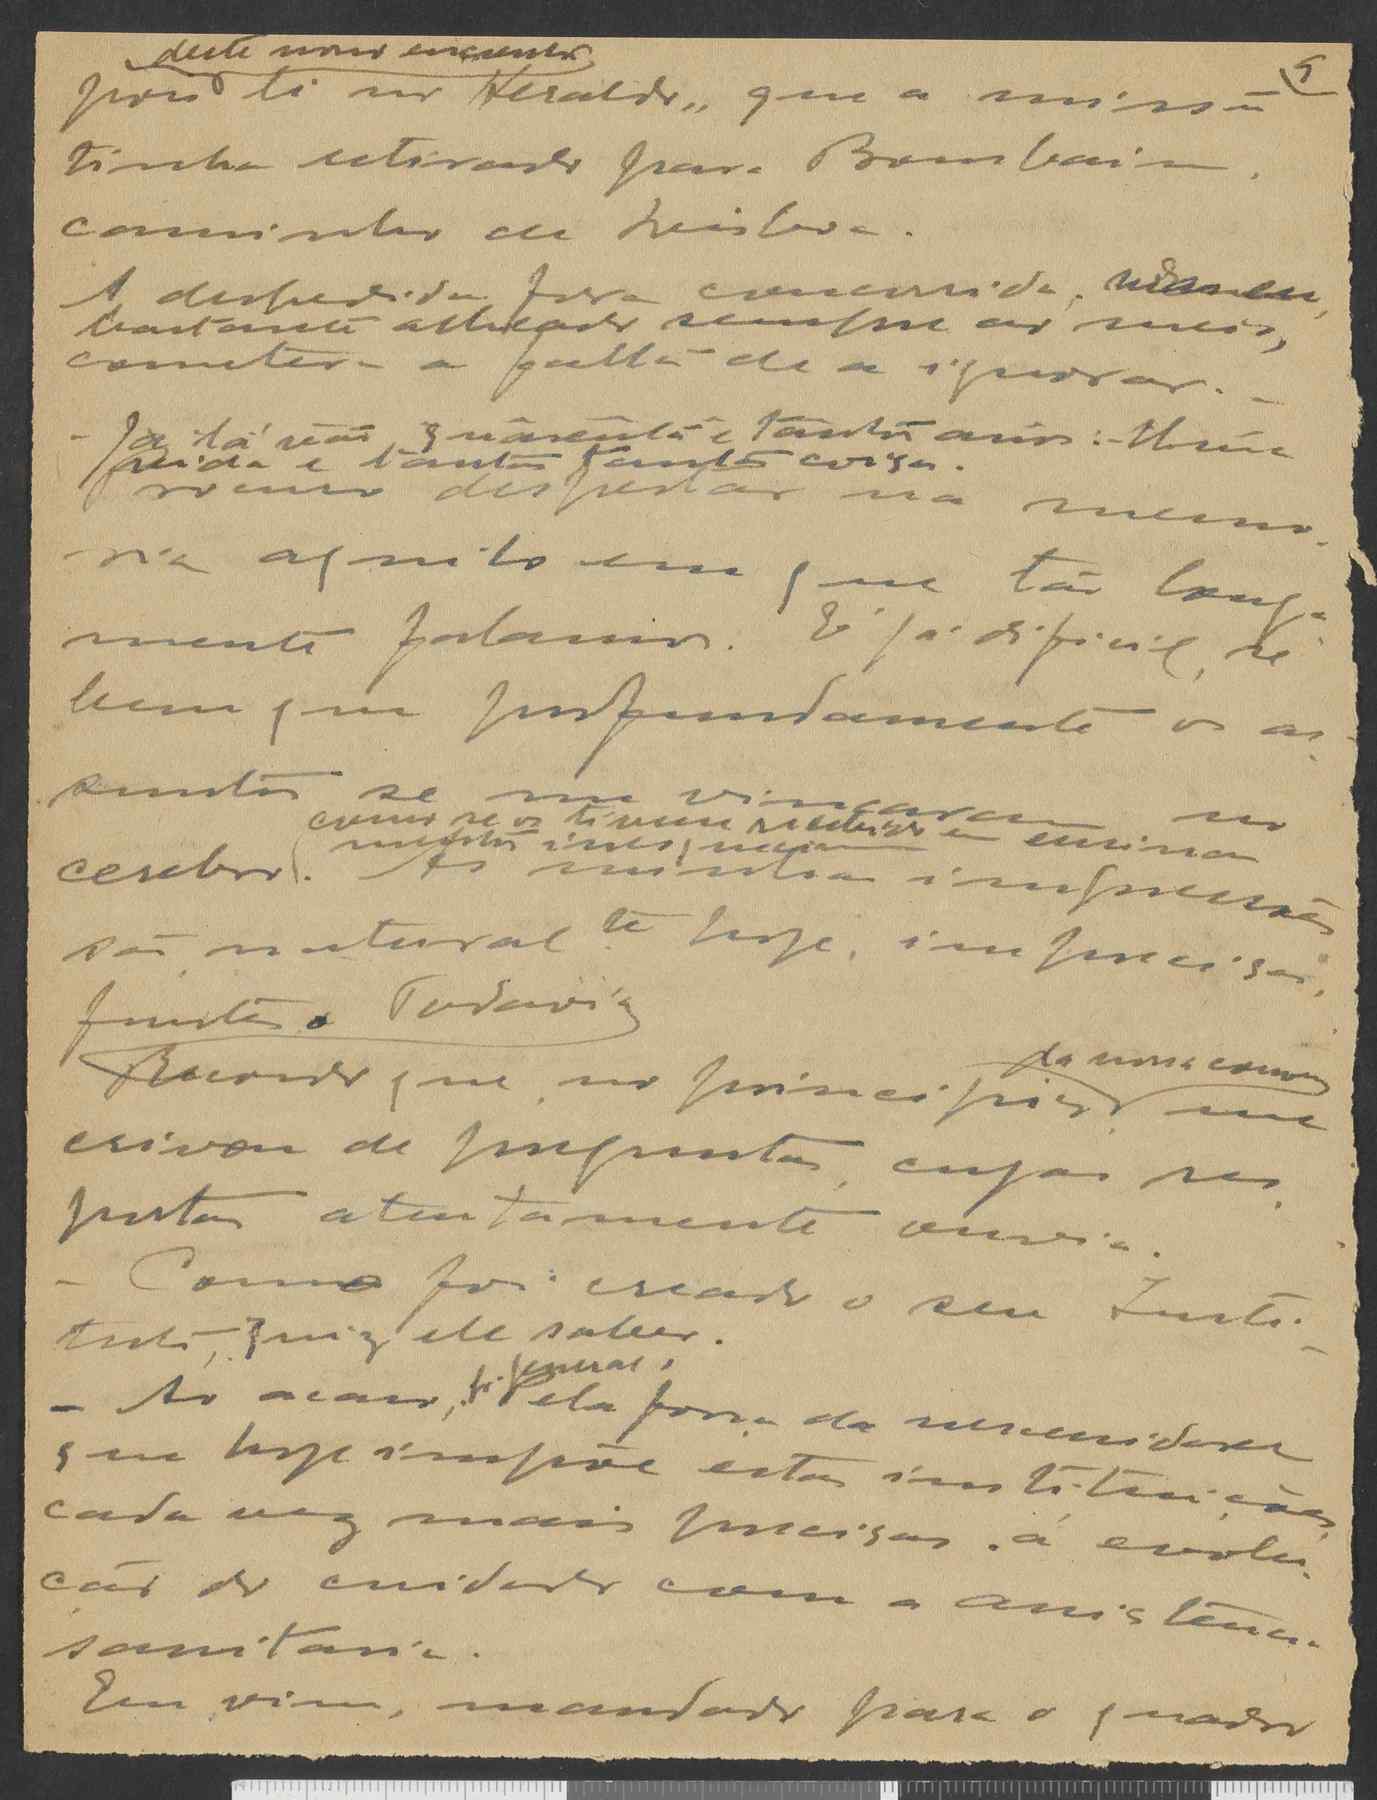 deste nosso encontro
5
pois li no Heraldo,, que a missão
tinha retirado para Bombaim,
caminho de Lisboa.
A despedida fora concorrida,
bastante alheado sempre ao meio,
cometera a falta de a ignorar. -
- Ja lá vão quarenta e tantos anos:- Uma
vida e tantas tantas coisa.
vamos despertar na memo-
ria aquilo em que tão longa
mente falamos. É já dificil, se
bem que profundamente os as-
suntos se me vincaram no
como se os tivesse recebido em ensina
mentos inesqueciveis
cerebro. As minhas impressões
são, natural te hoje, imprecisas,
juntas. Todavia
Recordo que, no principio, me
da nossa conver
crivou de preguntas, cujas res-
postas atentamente ouvia.
- Como foi creado o seu Insti-
tuto, quiz ele saber.
- Ao acaso, sr. general, Pela força da necessidade
que hoje impõe estas instituições,
cada vez mais precisas á evolu-
ção do cuidado com a assistencia
sanitaria.
Eu vim, mandado para o quadro